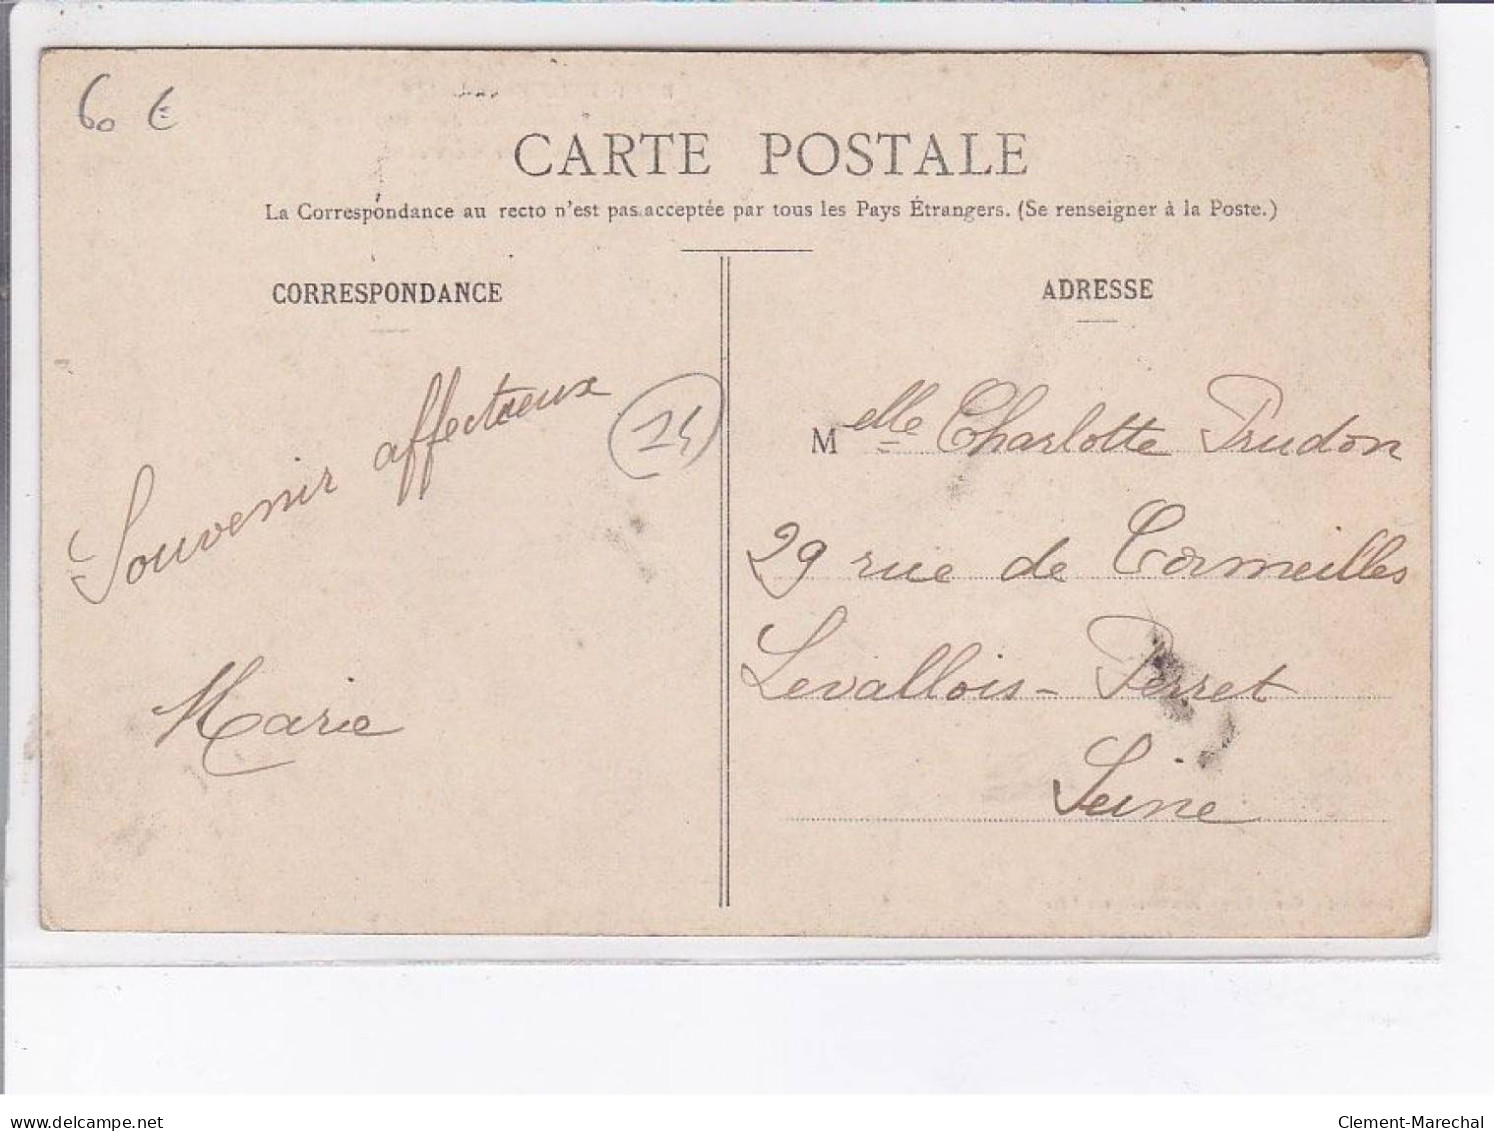 60 €
CARTE POSTALE
La Correspondance au recto n'est pas acceptée par tous les Pays Étrangers. (Se renseigner à la Poste.)
CORRESPONDANCE
Souvenir affectueux
Marie
ADRESSE
Melle Charlotte Prudon
29 rue de Cormeilles
Levallois-Perret
Seine
delcampe.net
Clement-Marechal